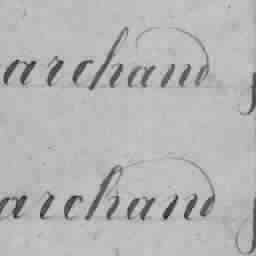 archand
archand